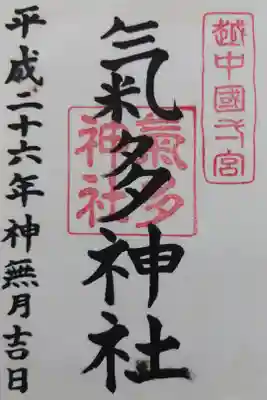 越中國弌宮
氣多神社
氣多
神社
平成二十六年神無月吉日